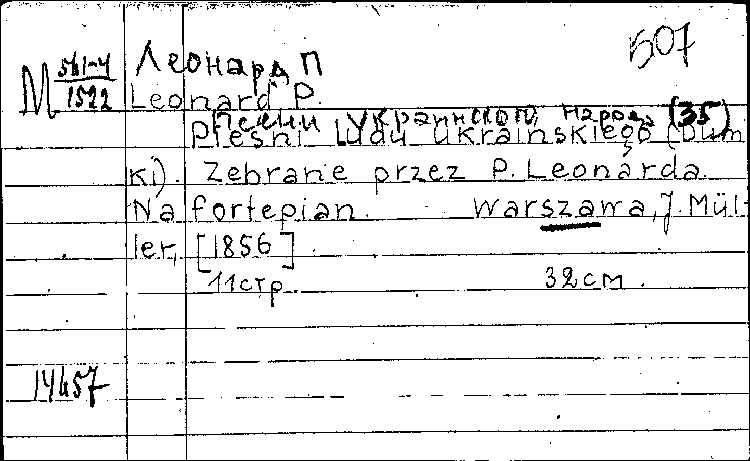 507
М 561-4/1522
Леонард П
Leonard P.
Песни украинского народа (35)
Pieśni ludu ukraińskiego (Dum
ki). Zebrane przez P. Leonarda.
Na fortepian. Warszawa, J. Mül-
ler, [1856]
11стр. 32см.
14457